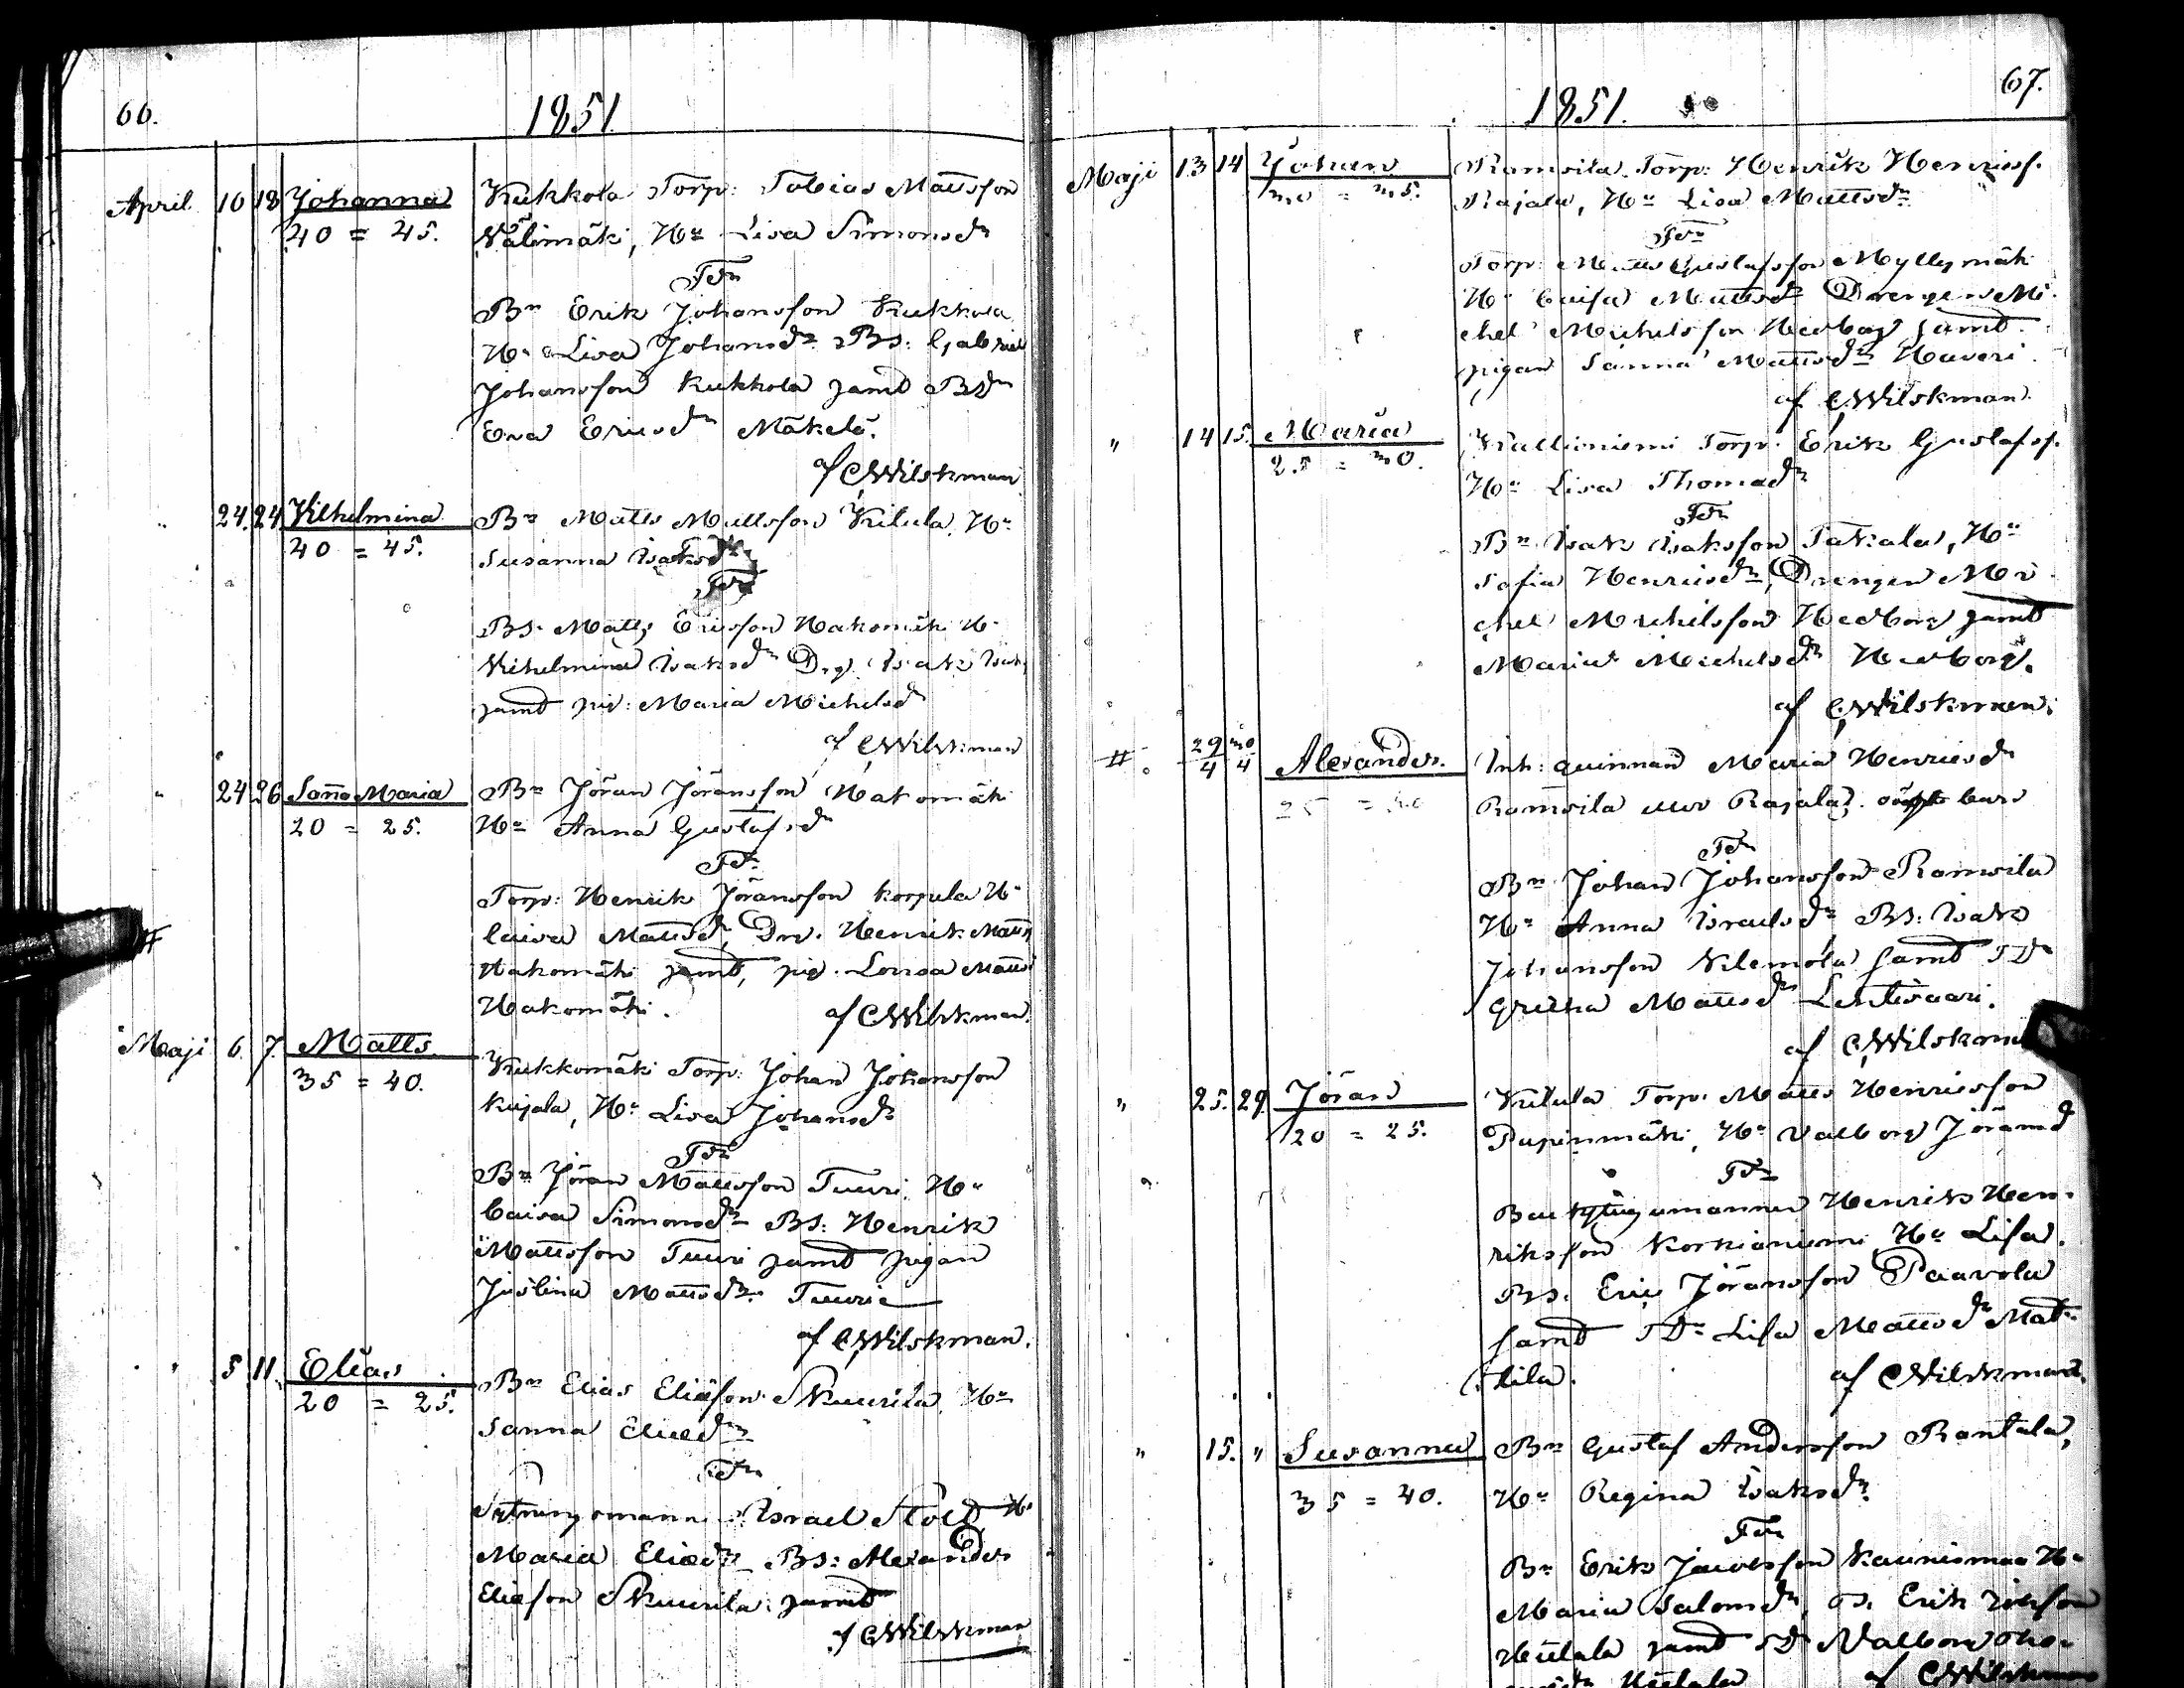 66.
1851.
April 16 18 Johanna
40 = 45.
Kukkola Torp: Tobias Mattsson
Välimäki, Hu Lisa Simonsdr
Fdr
Bn Erik Johansson Kukkola
Hu Lisa Johansdr Bs: Gabriel
Johansson Kukkola samt BDr
Eva Ericsdr Mäkelä.
af CWilskman
" 24. 24 Vilhelmina
40 = 45.
Bn Matts Mattsson Kilula, Hu
Susanna Isaksdr
Fdr
Bs. Matts Ericsson Hakomäki Hu
Vilhelmina Isaksdr Drg. Isak Isaks
samt pig: Maria Michelsdr
af CWilskman
" 24 26 Sanna Maria
20 = 25.
Bn Jöran Jöransson Hakomäki
Hu Anna Gustafsdr
Fdr
Torp: Henrik Jöransson Korpula Hu
Caisa Mattsdr, Dr. Henrik Matts
Hakomäki samt, pig. Lovisa Matts
Hakomäki.
af CWilskman.
Maji 6. 7. Matts
35 = 40.
Kukkomäki Torp: Johan Johansson
Kujala, Hu Lisa Johansdr
Fdr
Bn Jöran Mattsson Tuuri, Hu
Caisa Simonsdr Bs: Henrik
Mattsson Tuuri samt pigan
Justina Mattsdr Tuuri
af CWilskman.
" 5 11. Elias
20 = 25.
Bn Elias Eliasson Skuurila, Hu
Sanna Eliedr
Fdr
Israel Stolt Hu
Maria Eliædr Bs: Alexander
Eliasson Skuurila samt
af CWilskman
67.
1851.
Maji 13 14 Johan
30 = 35.
Ramsila Torp: Henrik Henrissf.
Rajala, Hu Lisa Mattsdr
Fdr
Torp: Matts Gustafsson Myllymäki
Hu Caisa Mattsdr Drengen Mi-
chel Michelsson Hedborg samt
pigan Sanna Mattsdr Haveri.
af CWilskman.
" 14 15. Maria
25 = 30.
Kallioniemi Torp: Erik Gustafsf.
Hu Lisa Thomadr
Fdr
Bn Isak Isaksson Takala, Hu
Sofia Henricsdr, Drengen Mi-
chel Michelsson Hedborg samt
Maria Michelsdr Hedborg.
af CWilskman.
# 29/4 30/4 Alexander.
Inh: quinnan Maria Henricsdr
Ramsila Rajala,
Fdr
Bn Johan Johansson Ramsila
Hu Anna Israelsdr Bs: Isak
Johansson Vilemola samt TDr
Gretha Mattsdr Lentivaari.
af CWilskman
" 25. 29 Jöran
20 = 25.
Kilula Torp: Matts Henricsson
Papinmäki, Hu Valborg Jöransd
Fdr
Henriks Hen-
riksson Korkianiemi, Hu Lisa.
Bs. Eric Jöransson Paavola
samt TDr Lisa Mattsdr Mat-
tila.
af CWilskman.
" 15. " Susanna
35 = 40.
Bn Gustaf Andersson Rantala,
Hu Regina Isaksdr
Fdr
Bn Erik Jacobsson Kaunismaa Hu
Maria Salomdr, Erik
samt Valborg
af CWilskman